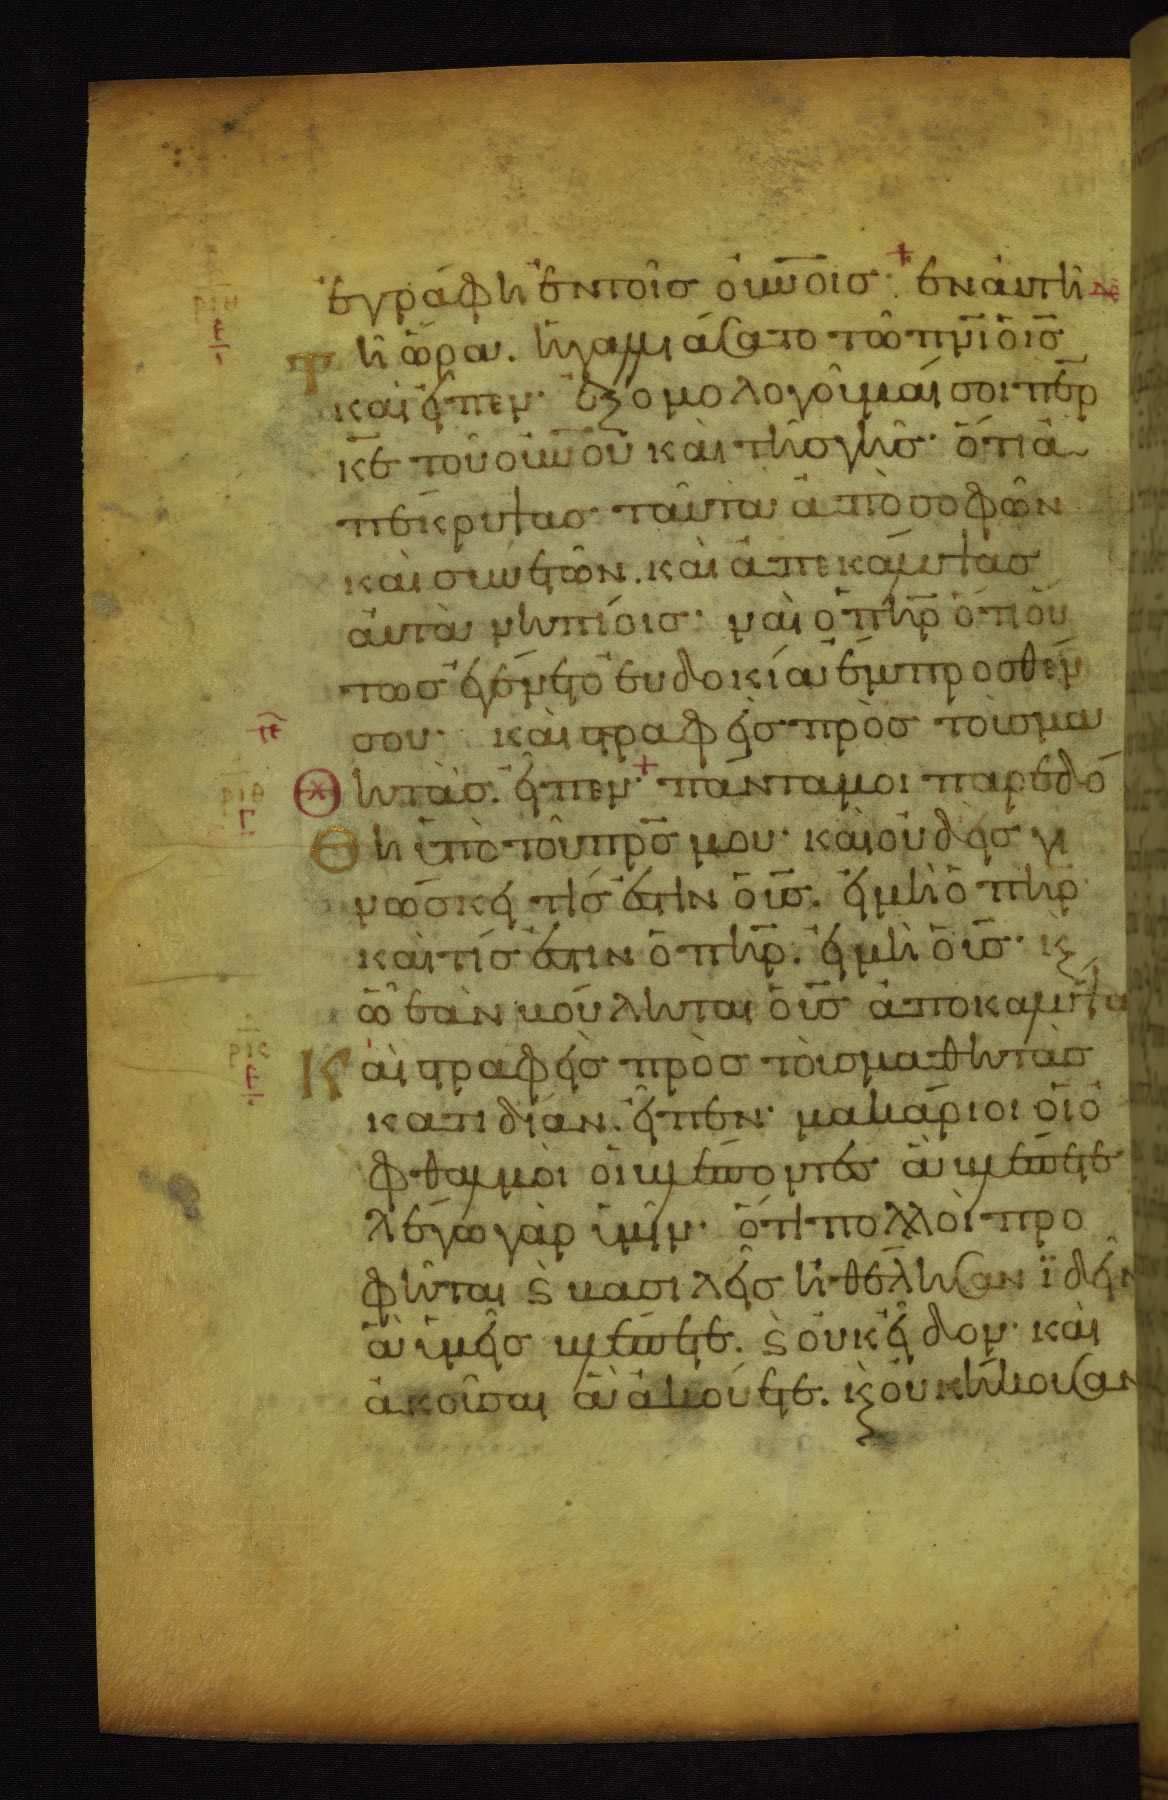 ἐγράφη ἐν τοῖς οὐνοῖς· ἐν αὐτῆ
τῆ ὥρα. ἠγαλλιάσατο τῶ πνι ὁ ις
καὶ εἶπεν· ἐξομολογοῦμαί σοι περ
κε τοῦ οὐνοῦ καὶ τῆς γῆς· ὅτι ἀ
πέκρυψας ταῦτα ἀπὸ σοφῶν
καὶ συνετῶν. καὶ ἀπεκάλυψας
αὐτὰ νηπίοις· ναὶ ὁ πηρ ὅτι οὕ
τως ἐγένετο εὐδοκία ἔμπροσθέν
σου· καὶ στραφεὶς πρὸς τοὺς μα
θητὰς. εἶπεν· πάντα μοι παρεδό
θη ὑπὸ τοῦ πρς μου· καὶ οὐδεὶς γι
νώσκει τίς ἐστιν ὁ υς. εἰ μὴ ὁ πηρ·
καὶ τίς ἐστιν ὁ πηρ. εἰ μὴ ὁ υς· κ
ῶ ἐὰν βούληται ὁ υς ἀποκαλύψαι
Καὶ στραφεὶς πρὸς τοὺς μαθητὰς
κατιδίαν. εἶπεν· μακάριοι οἱ ὀ
φθαλμοὶ οἱ βλέποντες ἃ βλέπετε
λέγω γὰρ ὑμῖν· ὅτι πολλοὶ προ
φῆται ϗ βασιλεῖς ἠθέλησαν ἰδεῖν
ἃ ὑμεῖς βλέπετε. ϗ οὐκ εἶδον· καὶ
ἀκοῦσαι ἃ ἀκούετε. κ οὐκ ἤκουσαν
ριη
ε
πε
ριθ
γ
ρκ
ε